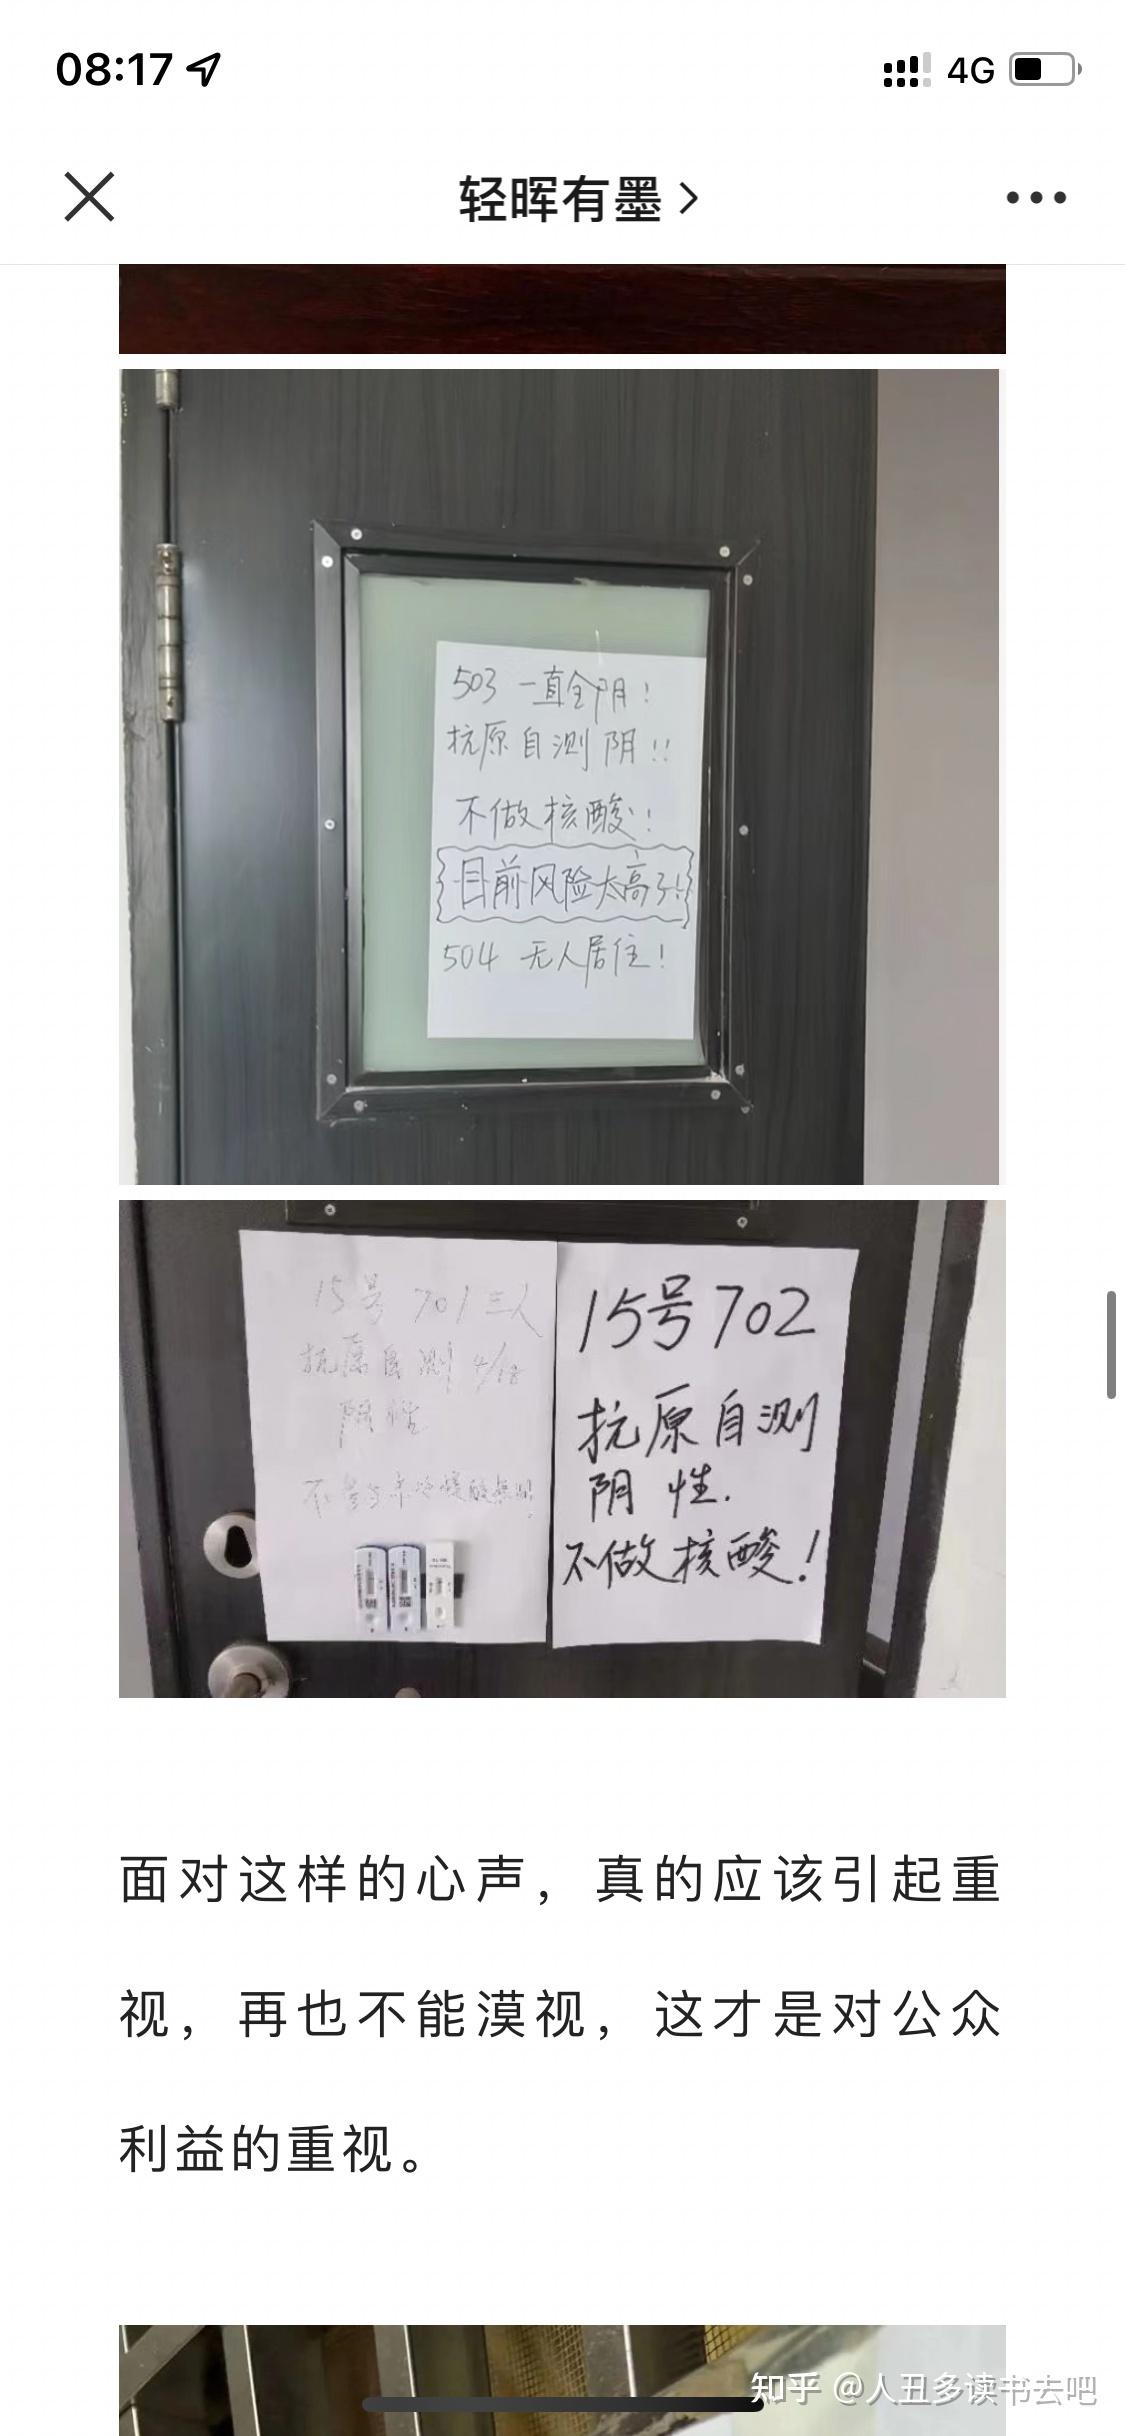 08:17
4G
轻晖有墨
503 一直全阴！
抗原自测阴！！
不做核酸！
目前风险太高了！
504 无人居住！
15号 701 三人
抗原自测 4/18
阴性
15号702
抗原自测
阴性.
不做核酸！
面对这样的心声，真的应该引起重
视，再也不能漠视，这才是对公众
利益的重视。
知乎 @人丑多读书去吧